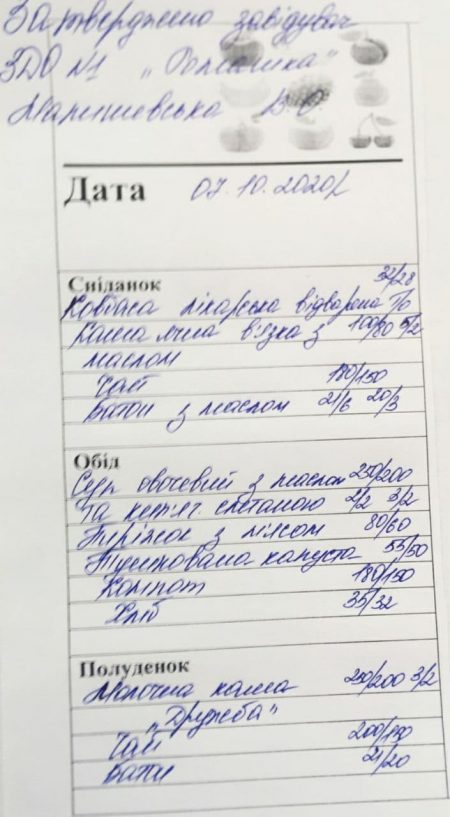 Затверджено завідувач
ЗДО №1 „Ромашка"
В.О
Дата 07.10.2020р
Сніданок 32/28
Ковбаса лікарська відварена
Каша ячна в'язка з 100/80 5/2
маслом
Чай 180/150
Батон з маслом 21/6 20/3
Обід
Суп овочевий з маслом 250/200
Та сметаною 2/2 3/2
Пиріжок з мʼясом 80/60
Тушкована капуста 55/50
Компот 180/150
Хліб 35/32
Полуденок
Молочна каша 250/200 3/2
„Дружба"
Чай 200/150
Батон 21/20